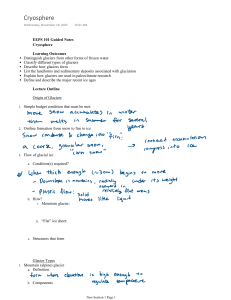 Cryosphere
Wednesday, November 18, 2020
ESPS 101 Guided Notes
Cryosphere
Learning Outcomes
• Distinguish glaciers from other forms of frozen water
• Classify different types of glaciers
• Describe how glaciers form
• List the landforms and sedimentary deposits associated with glaciation
• Explain how glaciers are used in paleoclimate research
• Define and describe the major recent ice ages
Lecture Outline
Origin of Glaciers
1. Simple budget condition that must be met:
more snow accumulates in winter
than melts in summer for several
years
2. Outline formation from snow to firn to ice
Snow condense & change into "firn,"
a coarse, granular snow,
"corn snow"
accumulation
compress into ice
3. Flow of glacial ice
a. Condition(s) required?
When thick enough begins to move
- Downslope in mountains, radially under its weight
outward in
relatively flat areas
- Plastic flow: solid
moves like liquid
b. How?
i. Mountain glacier:
ii. "Flat" ice sheet:
c. Structures that form
Glacier Types
1. Mountain (alpine) glacier
a. Definition
form when elevation is high enough to
regulate temperature
b. Components
New Section 1 Page 1